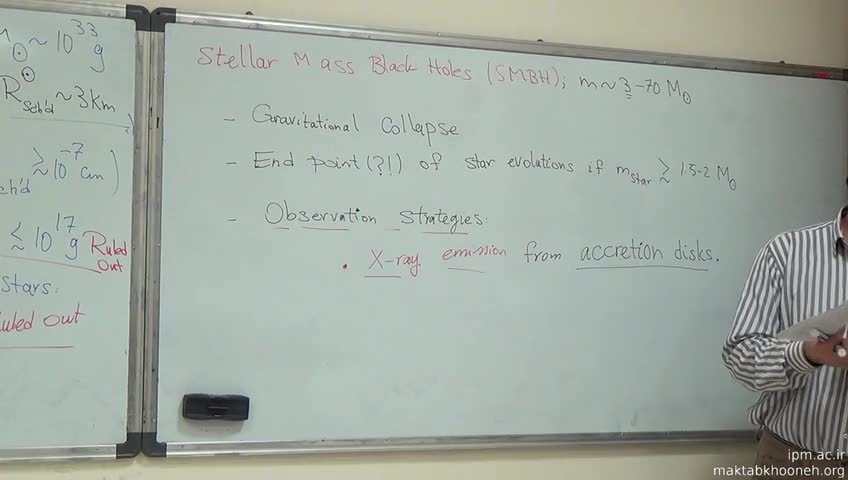 M⊙ ~ 10^33 g
R_Sch'd ~ 3 km
≳ 10^-7 cm)
ch'd
≲ 10^17 g Ruled
Out
Stars:
uled out
Stellar Mass Black Holes (SMBH); m ~ 3-70 M⊙
- Gravitational Collapse
- End point (?!) of star evolutions if m_star ≳ 1.5-2 M⊙
- Observation strategies:
• X-ray emission from accretion disks.
ipm.ac.ir
maktabkhooneh.org